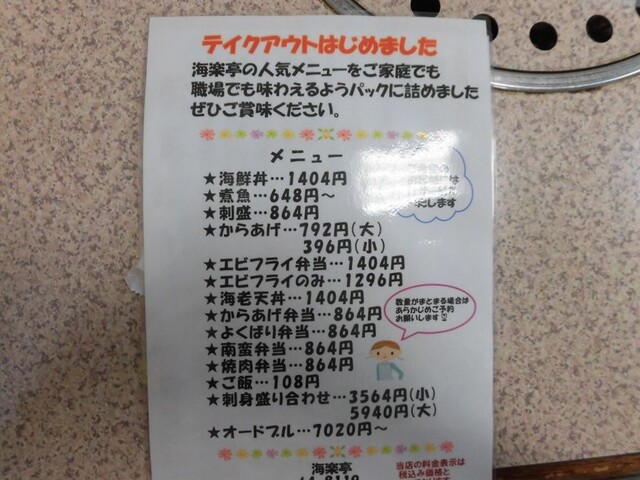 テイクアウトはじめました
海楽亭の人気メニューをご家庭でも
職場でも味わえるようパックに詰めました
ぜひご賞味ください。
メニュー
★海鮮丼…1404円
★煮魚…648円～
★刺盛…864円
★からあげ…792円(大)
396円(小)
★エビフライ弁当…1404円
★エビフライのみ…1296円
★海老天丼…1404円
★からあげ弁当…864円
★よくばり弁当…864円
★南蛮弁当…864円
★焼肉弁当…864円
★ご飯…108円
★刺身盛り合わせ…3564円(小)
5940円(大)
★オードブル…7020円～
数量がまとまる場合は
あらかじめご予約
お願いします
海楽亭
当店の料金表示は
税込み価格と